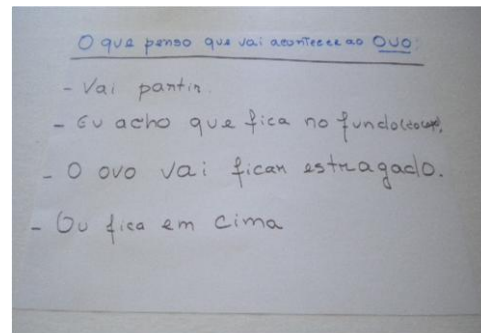 O que penso que vai acontecer ao OVO:
- Vai partir.
- Eu acho que fica no fundo (do copo).
- O ovo vai ficar estragado.
- Ou fica em cima